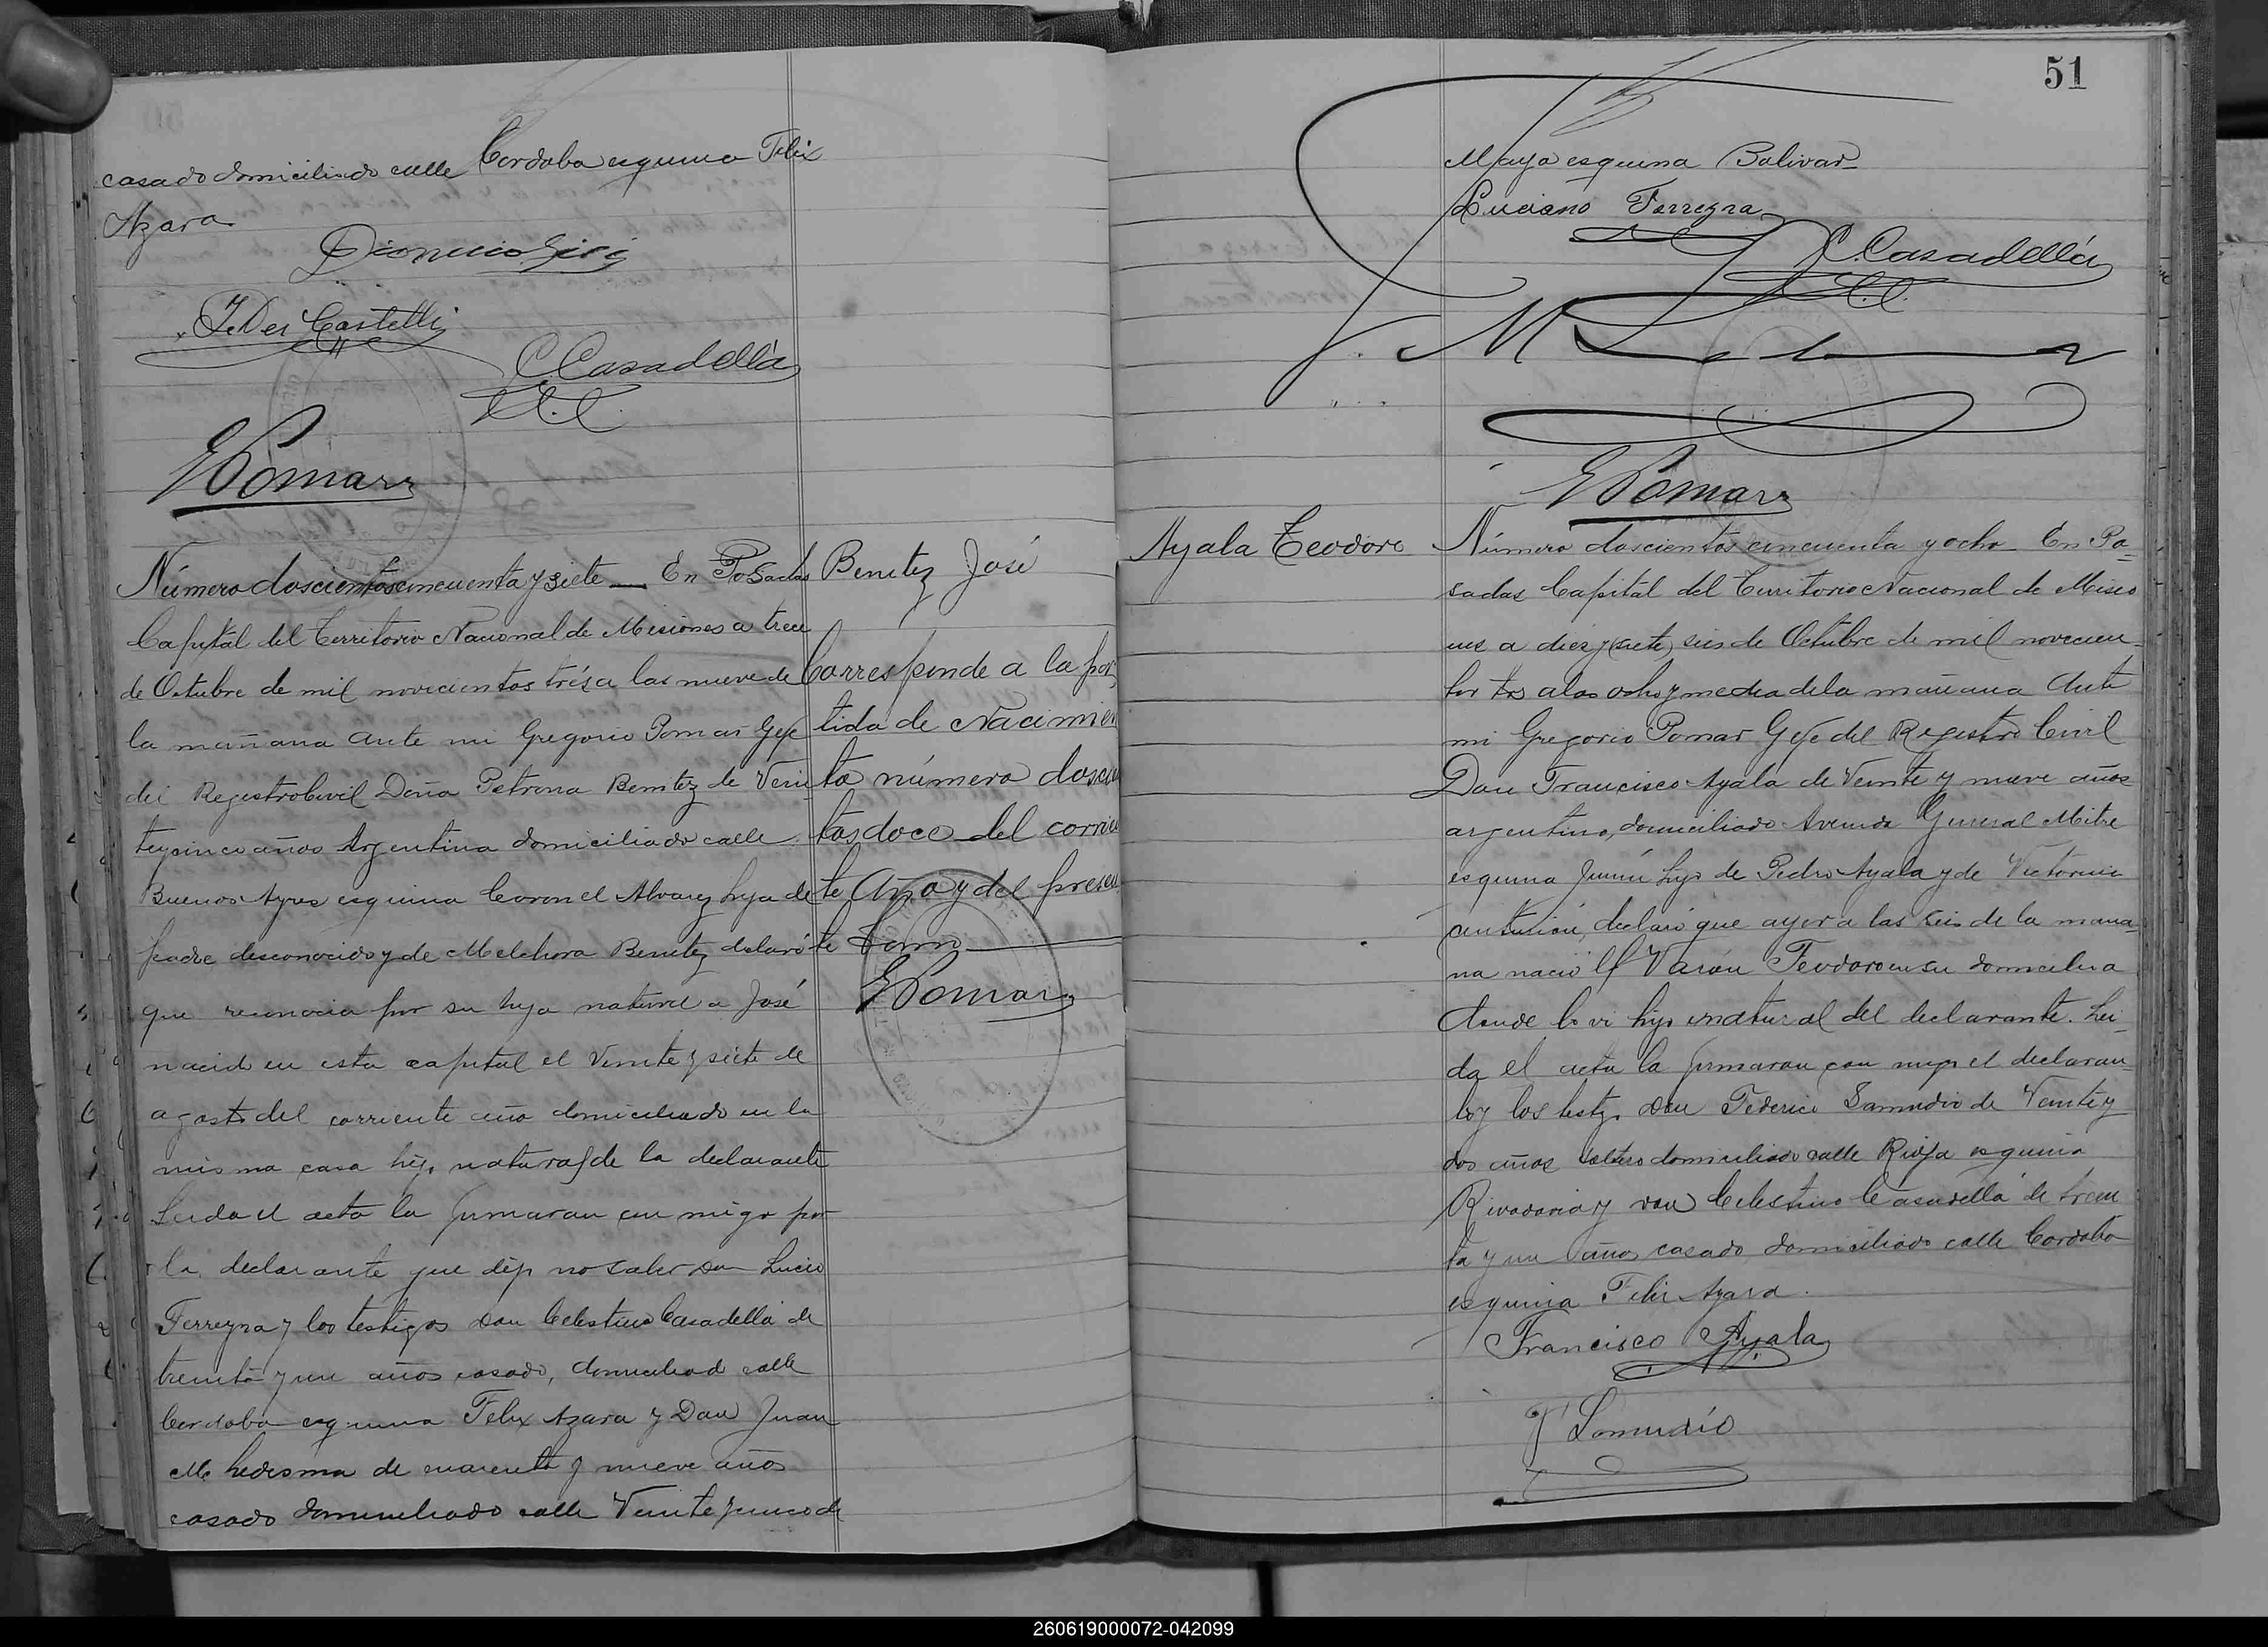 casado domiciliado calle Cordoba esquina Felix
Azara
C. Casadellá
GPomar
Número doscientos cincuenta y siete — En Posadas
Capital del Territorio Nacional de Misiones a trece
de Octubre de mil novecientos trés a las nueve de
la mañana ante mi Gregorio Pomar Gefe
del Registro Civil Doña Petrona Benitez de Vein
teycinco años Argentina domiciliado calle
Buenos Ayres esquina Coronel Alvarez hija de
padre desconocido y de Melchora Benitez declaró
que reconocia por su hijo natural a José
nacido en esta capital el Veinte y siete de
agosto del corriente año domiciliado en la
misma casa hijo natural de la declarante
Leida el acta la firmaran conmigo por
la declarante que dijo no saber Don Lucio
Ferreyra y los testigos Don Celestino Casadellá de
treinta y un años casado, domiciliado calle
Cordoba esquina Felix Azara y Don Juan
M. Ledesma de cuarenta y nueve años
casado domiciliado calle Veinte y cinco de
Benitez José
Corresponde a la par
tida de Nacimien
to número doscien
tos doce del corrien
te Año y del presen
te Tomo
GPomar
51
Mayo esquina Bolivar
Luciano Ferreyra
C. Casadellá
GPomar
Ayala Teodoro
Número doscientos cincuenta y ocho En Po-
sadas Capital del Territorio Nacional de Misio
nes a diez y (siete) seis de Octubre de mil novecien-
tos tres a las ocho y media de la mañana Ante
mi Gregorio Pomar Gefe del Registro Civil
Don Francisco Ayala de Veinte y nueve años
argentino, domiciliado Avenida General Mitre
esquina Junin hijo de Pedro Ayala y de Victoria
declaró que ayer a las seis de la maña-
na nació el Varón Teodoro en su domicilio
donde lo vi hijo natural del declarante. Lei-
da el acta la firmaran conmigo el declaran-
te y los testg. Don Federico Samudio de Veinte y
dos años soltero domiciliado calle Rioja esquina
Rivadavia y don Celestino Casadellá de trein
ta y un años casado domiciliado calle Cordoba
esquina Felix Azara.
Francisco Ayala
F Samudio
260619000072-042099